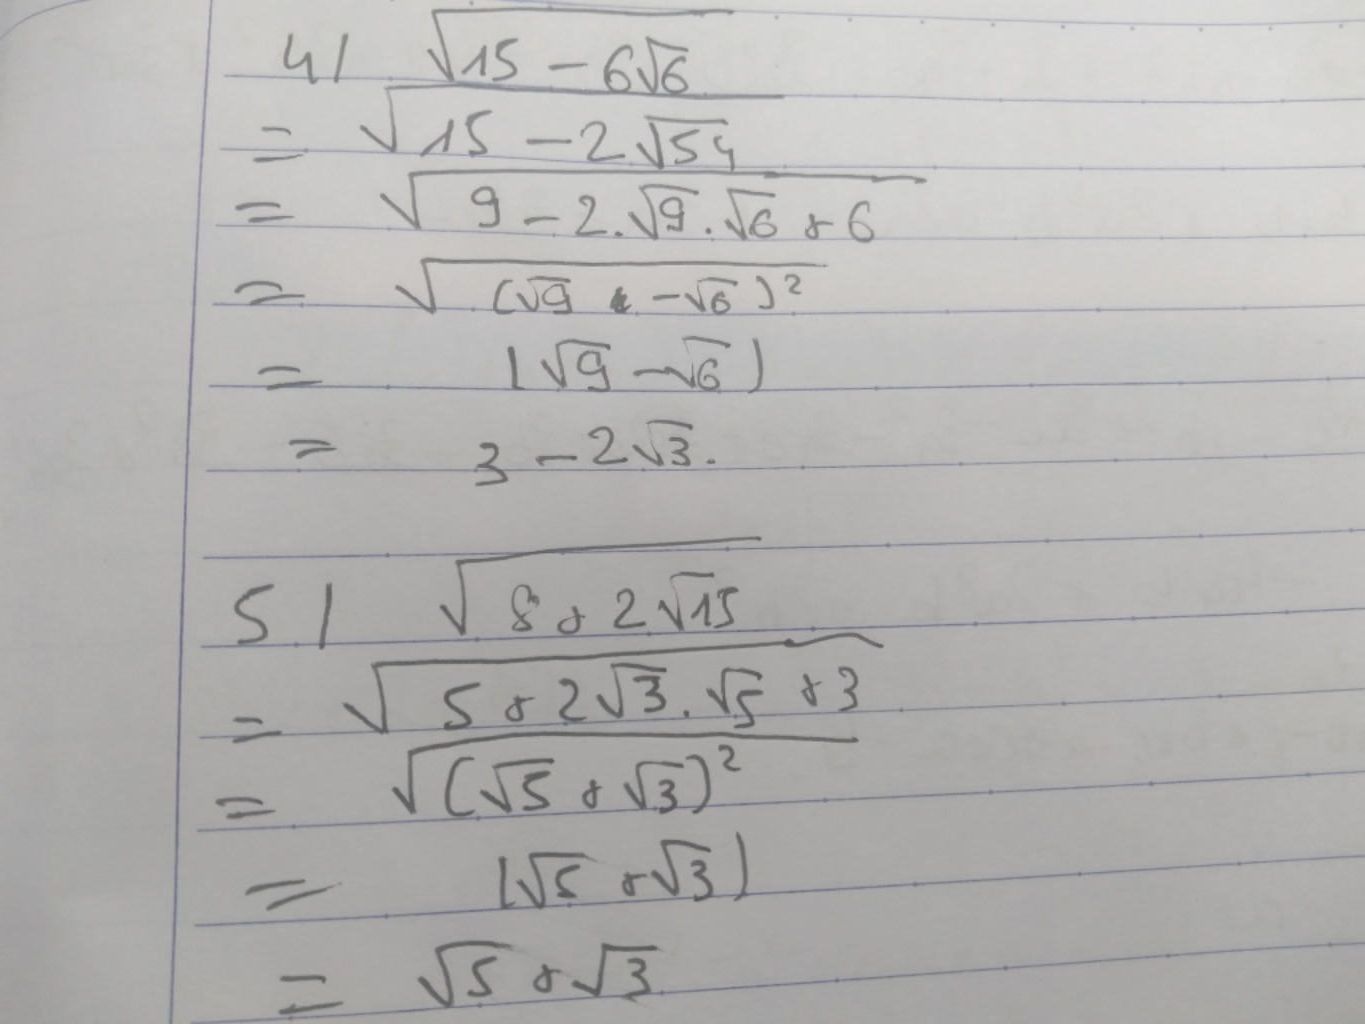 4/ √(15 - 6√6)
= √(15 - 2√54)
= √(9 - 2.√9.√6 + 6)
= √((√9 - √6)²)
= |√9 - √6|
= 3 - 2√3.
5/ √(8 + 2√15)
= √(5 + 2√3.√5 + 3)
= √((√5 + √3)²)
= |√5 + √3|
= √5 + √3